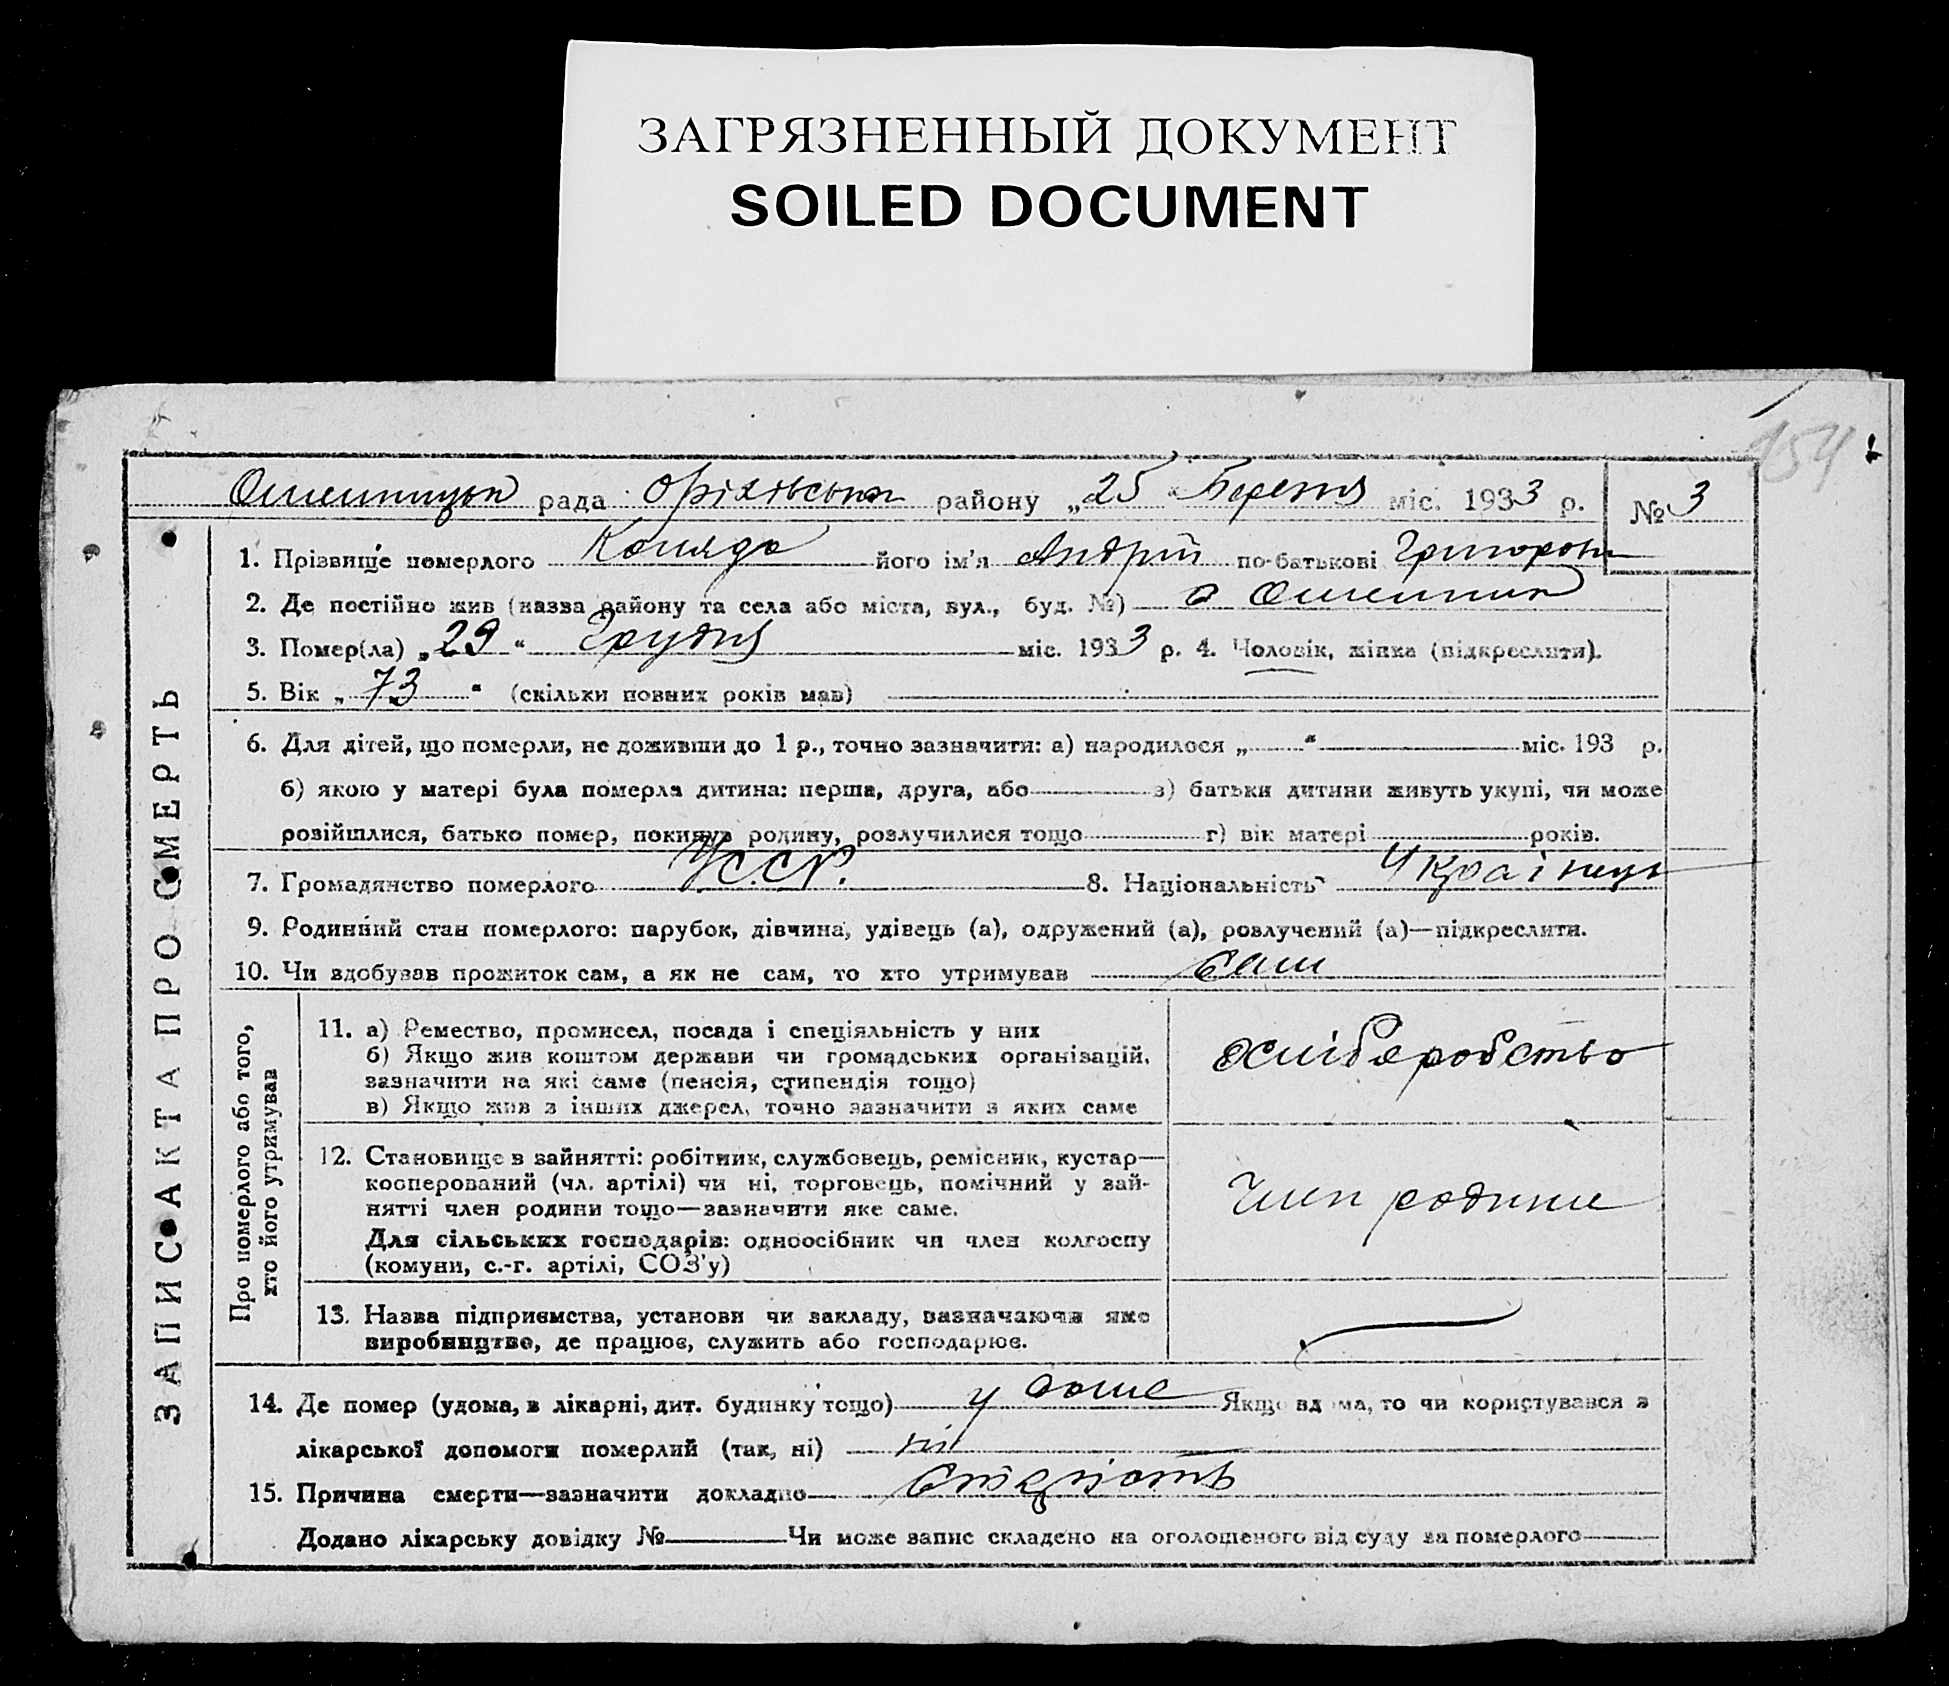 ЗАГРЯЗНЕННЫЙ ДОКУМЕНТ
SOILED DOCUMENT
154
рада Оріхівськи району „25“ Березня міс. 1933 р. № 3
ЗАПИС АКТА ПРО СМЕРТЬ
1. Прізвище померлого Коляда його ім'я Андрій по-батькові Григоров
2. Де постійно жив (назва району та села або міста, вул., буд. №) с
3. Помер(ла) „29“ Грудня міс. 1933 р. 4. Чоловік, жінка (підкреслити).
5. Вік „73“ (скільки повних років мав)
6. Для дітей, що померли, не доживши до 1 р., точно зазначити: а) народилося „ “ міс. 193 р.
б) якою у матері була померла дитина: перша, друга, або в) батьки дитини живуть укупі, чи може
розійшлися, батько помер, покинув родину, розлучилися тощо г) вік матері років.
7. Громадянство померлого УССР. 8. Національність Українець
9. Родинний стан померлого: парубок, дівчина, удівець (а), одружений (а), розлучений (а)—підкреслити.
10. Чи здобував прожиток сам, а як не сам, то хто утримував сам
Про померлого або того,
хто його утримував
11. а) Ремество, промисел, посада і спеціяльність у них
б) Якщо жив коштом держави чи громадських організацій,
зазначити на які саме (пенсія, стипендія тощо)
в) Якщо жив з інших джерел, точно зазначити з яких саме
хліборобство
12. Становище в зайнятті: робітник, службовець, ремісник, кустар—
кооперований (чл. артілі) чи ні, торговець, помічний у зай-
нятті член родини тощо—зазначити яке саме.
Для сільських господарів: одноосібник чи член колгоспу
(комуни, с.-г. артілі, СОЗ'у)
Член родини
13. Назва підприємства, установи чи закладу, зазначаючи яке
виробництво, де працює, служить або господарює.
14. Де помер (удома, в лікарні, дит. будинку тощо) у доме Якщо вдома, то чи користувався з
лікарської допомоги померлий (так, ні) ні
15. Причина смерти—зазначити докладно старість
Додано лікарську довідку № Чи може запис складено на оголошеного від суду за померлого